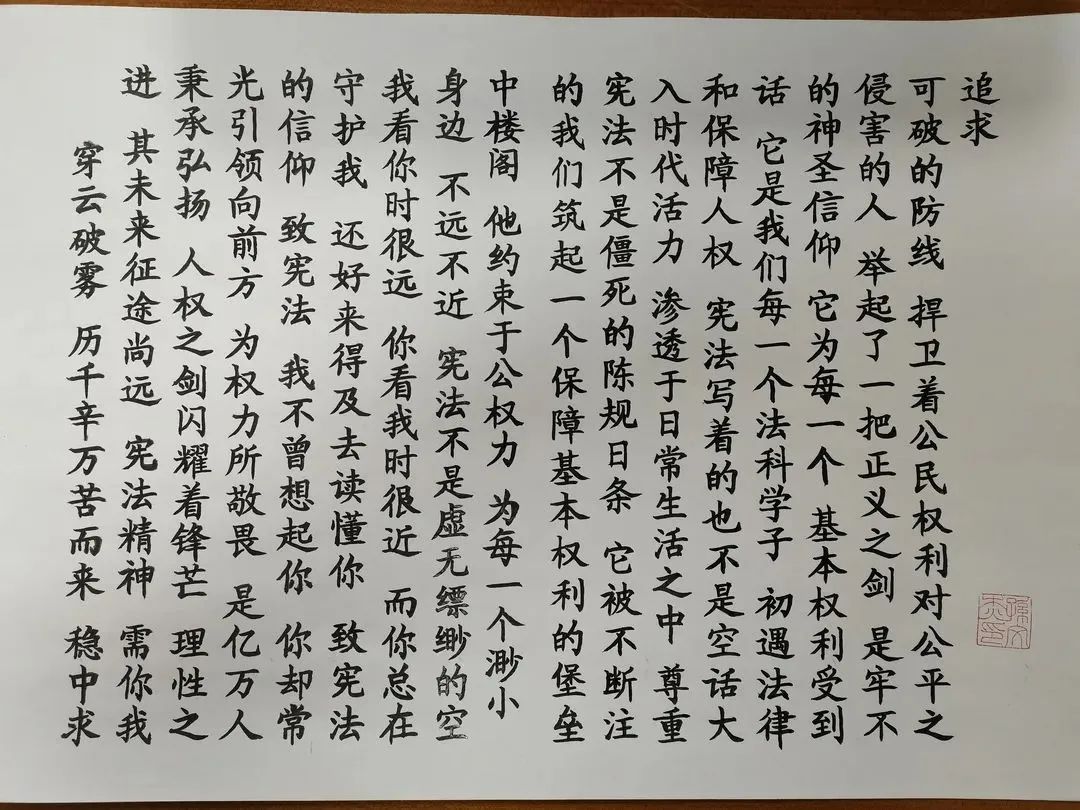 穿云破雾 历千辛万苦而来 稳中求
进 其未来征途尚远 宪法精神 需你我
秉承弘扬 人权之剑闪耀着锋芒 理性之
光引领向前方 为权力所敬畏 是亿万人
的信仰 致宪法 我不曾想起你 你却常
守护我 还好来得及去读懂你 致宪法
我看你时很远 你看我时很近 而你总在
身边 不远不近 宪法不是虚无缥缈的空
中楼阁 他约束于公权力 为每一个渺小
的我们筑起一个保障基本权利的堡垒
宪法不是僵死的陈规日条 它被不断注
入时代活力 渗透于日常生活之中 尊重
和保障人权 宪法写着的也不是空话大
话 它是我们每一个法科学子 初遇法律
的神圣信仰 它为每一个 基本权利受到
侵害的人 举起了一把正义之剑 是牢不
可破的防线 捍卫着公民权利对公平之
追求